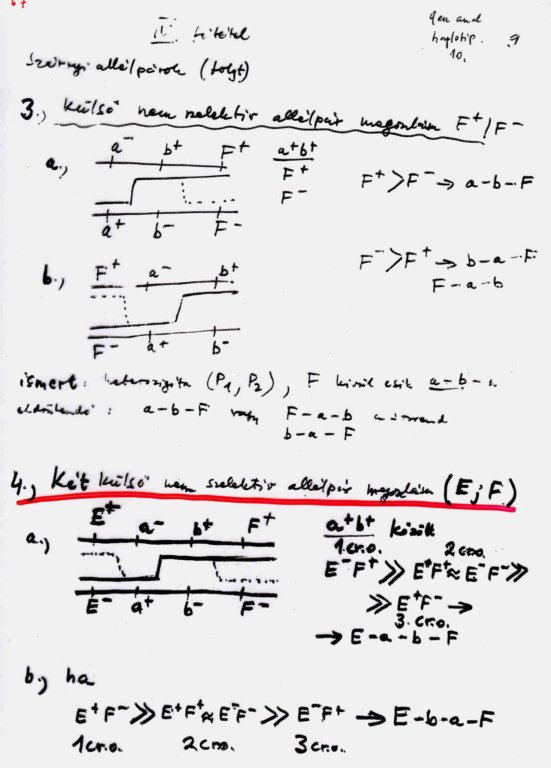 II. tétel
gen and
haplotip.
10.
9
(folyt)
3., Külső nem szelektív allélpár megoszlása F⁺/F⁻
a., a⁻ b⁺ F⁺
a⁺ b⁻ F⁻
a⁺b⁺
F⁺
F⁻
F⁺ > F⁻ → a-b-F
b., F⁺ a⁻ b⁺
F⁻ a⁺ b⁻
F⁻ > F⁺ → b-a-F
F-a-b
ismert: heterozigóta (P₁, P₂), F kívül esik a-b-n
eldöntendő: a-b-F vagy F-a-b
b-a-F
4., Két külső nem szelektív allélpár megoszlása (E; F)
a., E⁺ a⁻ b⁺ F⁺
E⁻ a⁺ b⁻ F⁻
a⁺b⁺ közük
1cr.o. 2cr.o.
E⁻F⁺ ≫ E⁺F⁺ ≈ E⁻F⁻ ≫
≫ E⁺F⁻ →
3.cr.o.
→ E-a-b-F
b., ha
E⁺F⁻ ≫ E⁺F⁺ ≈ E⁻F⁻ ≫ E⁻F⁺ → E-b-a-F
1cr.o. 2cr.o. 3cr.o.